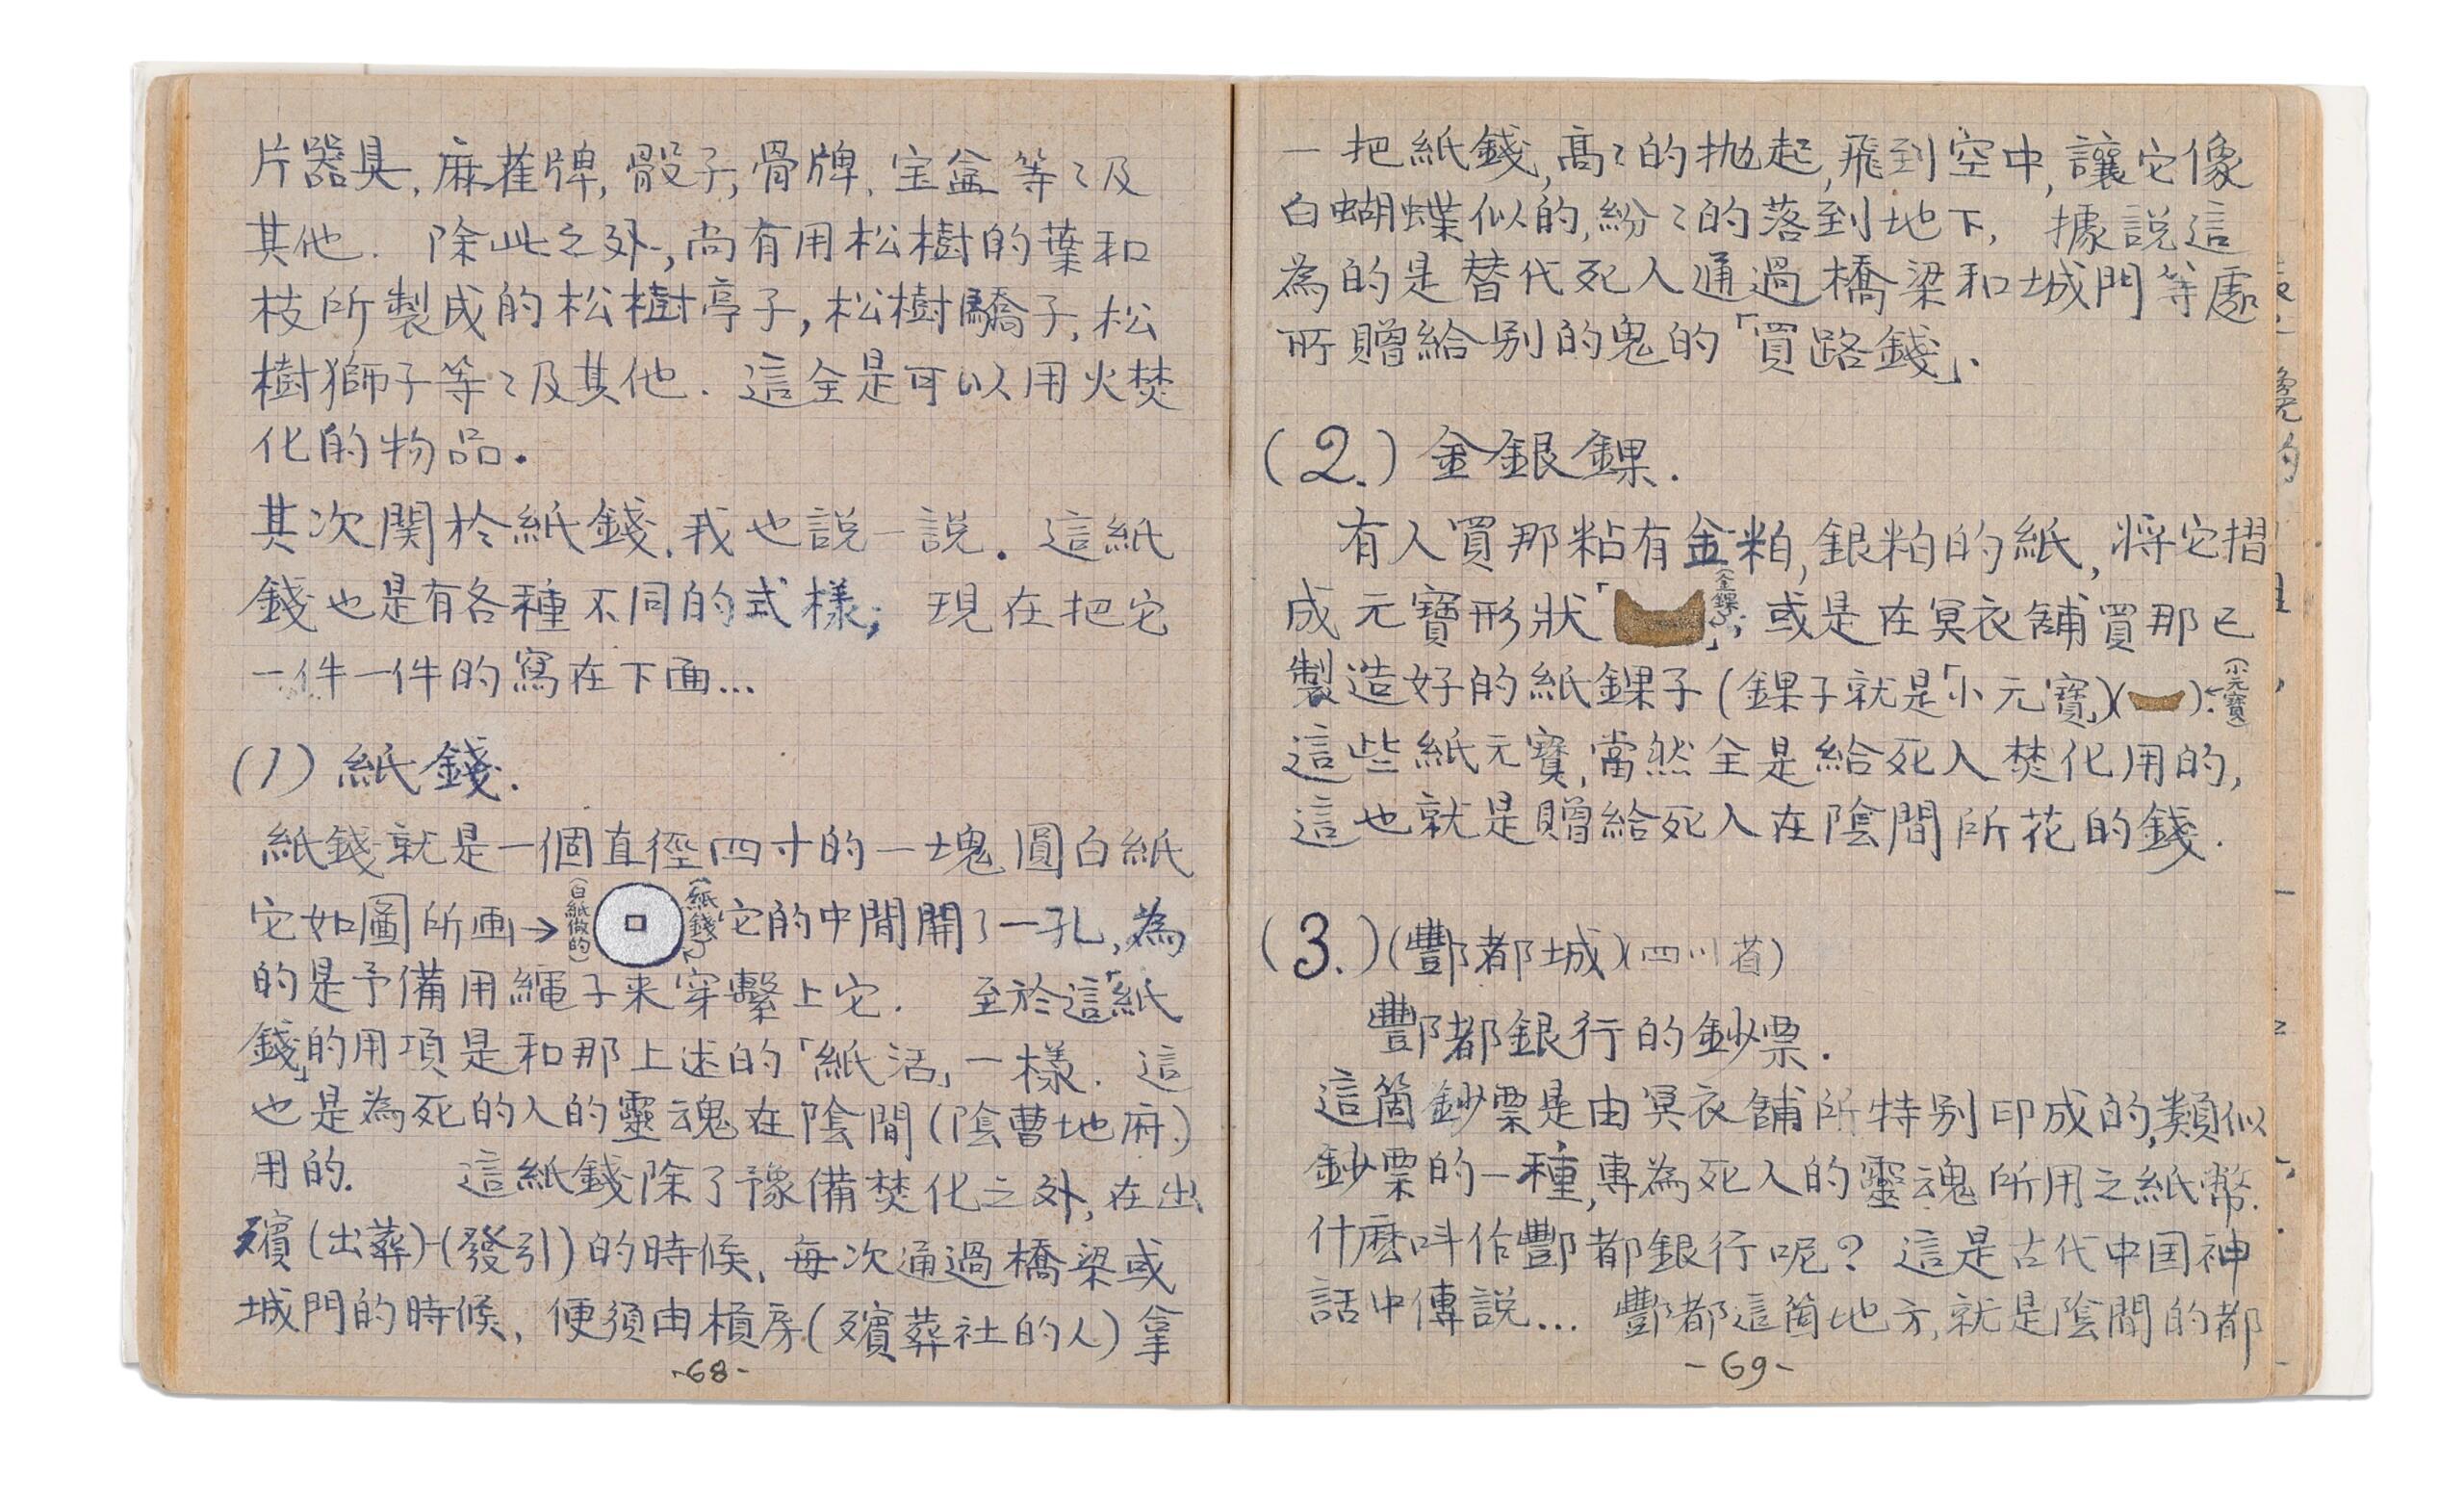 片器具,麻雀牌,骰子,骨牌,宝盆等〻及
其他. 除此之外,尚有用松樹的葉和
枝所製成的松樹亭子,松樹驕子,松
樹獅子等〻及其他. 這全是可以用火焚
化的物品.
其次関於紙錢,我也説一説. 這紙
錢也是有各種不同的式樣; 現在把它
一件一件的寫在下面...
(1) 紙錢.
紙錢就是一個直徑四寸的一塊圓白紙
它如圖所画→(白紙做的)(紙錢)它的中間開了一孔,為
的是予備用繩子来穿繫上它. 至於這「紙
錢」的用項是和那上述的「紙活」一樣. 這
也是為死的人的靈魂在陰間(陰曹地府.)
用的. 這紙錢除了豫備焚化之外,在出
殯(出葬)-(發引)的時候,每次通過橋梁或
城門的時候,便須由槓房(殯葬社的人)拿
-68-
一把紙錢,高〻的抛起,飛到空中,讓它像
白蝴蝶似的,紛〻的落到地下, 據説這
為的是替代死人通過橋梁和城門等處
所贈給别的鬼的「買路錢」.
(2.) 金銀錁.
有人買那粘有金粕,銀粕的紙,將它摺
成元寶形狀「(金錁子)」; 或是在冥衣舖買那已
製造好的紙錁子(錁子就是「小元寶」)( ).←(小元寶)
這些紙元寶,當然全是給死人焚化用的,
這也就是贈給死人在陰間所花的錢.
(3.)(酆都城)(四川省)
酆都銀行的鈔票.
這箇鈔票是由冥衣舖所特别印成的,類似
鈔票的一種,專為死人的靈魂所用之紙幣.
什麽叫作酆都銀行呢? 這是古代中国神
話中傳説... 酆都這箇地方,就是陰間的都
-69-